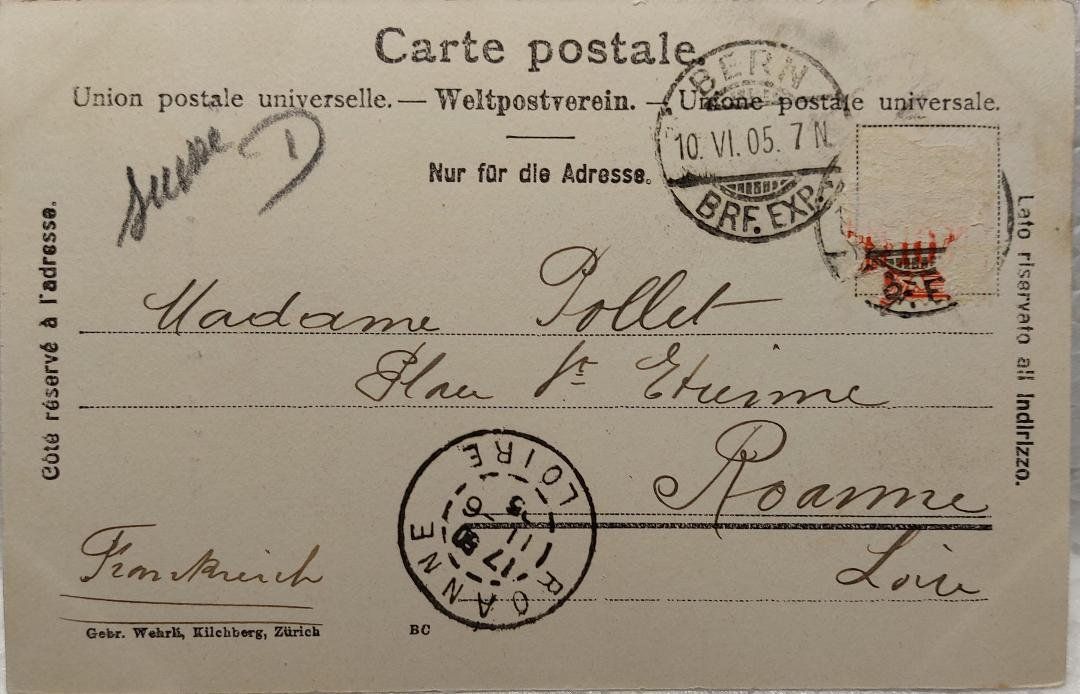 Carte postale.
Union postale universelle. — Weltpostverein. — Unione postale universale.
Nur für die Adresse.
Côté réservé à l'adresse.
Lato riservato all indirizzo.
Suisse
D
BERN
10. VI. 05. 7 N
BRF. EXP.
Madame Pollet
Place St Etienne
Roanne
Loire
Frankreich
ROANNE
LOIRE
17 50
11
6
05
Gebr. Wehrli, Kilchberg, Zürich
BC